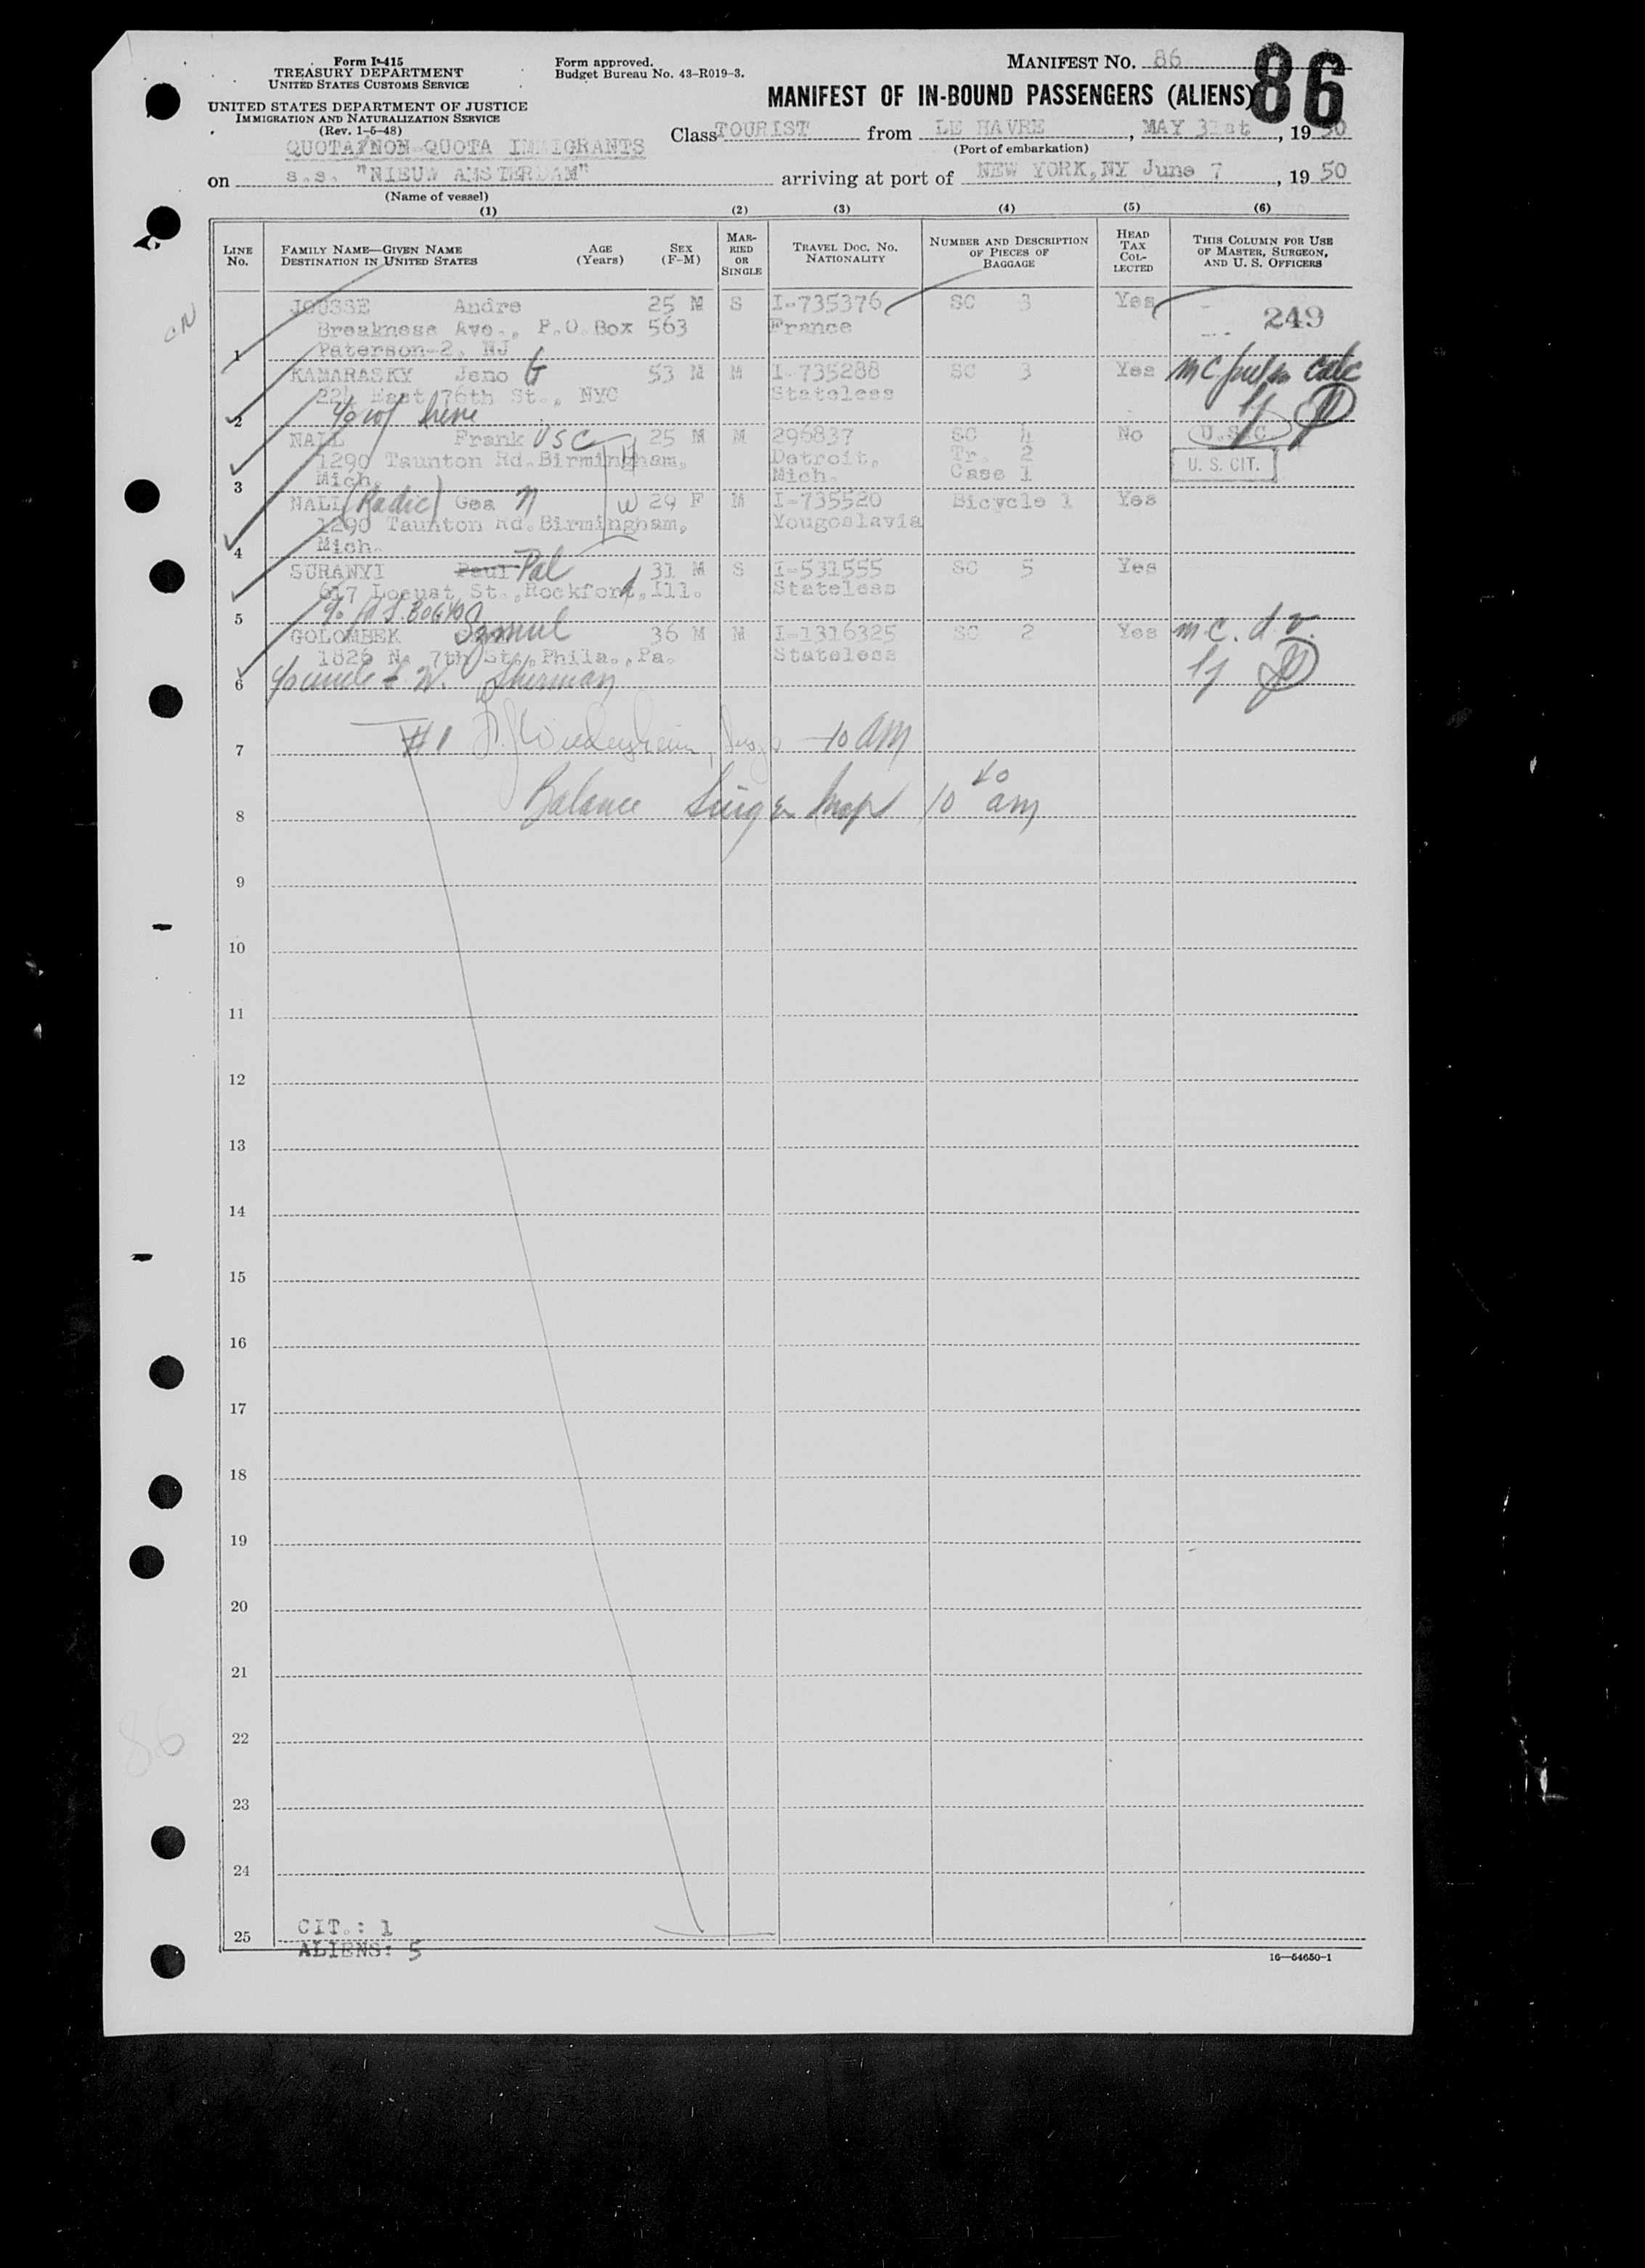 Form I-415
TREASURY DEPARTMENT
UNITED STATES CUSTOMS SERVICE
UNITED STATES DEPARTMENT OF JUSTICE
IMMIGRATION AND NATURALIZATION SERVICE
(Rev. 1-5-48)
Form approved.
Budget Bureau No. 43-R019-3.
MANIFEST NO. 86
86
MANIFEST OF IN-BOUND PASSENGERS (ALIENS)
Class TOURIST from LE HAVRE, MAY 31st, 1950
(Port of embarkation)
QUOTA/NON-QUOTA IMMIGRANTS
on s.s. "NIEUW AMSTERDAM" arriving at port of NEW YORK, NY June 7, 1950
(Name of vessel)
(1) (2) (3) (4) (5) (6)
LINE NO.
FAMILY NAME—GIVEN NAME
DESTINATION IN UNITED STATES
AGE (Years)
SEX (F-M)
MARRIED OR SINGLE
TRAVEL DOC. NO.
NATIONALITY
NUMBER AND DESCRIPTION OF PIECES OF BAGGAGE
HEAD TAX COLLECTED
THIS COLUMN FOR USE OF MASTER, SURGEON, AND U. S. OFFICERS
JOUSSE Andre 25 M S I-735376 SC 3 Yes 249
Breaknese Ave., P.O Box 563 France
1 Paterson-2, NJ
KAMARASKY Jeno G 53 M M I-735288 SC 3 Yes
224 East 76th St., NYC Stateless
2
NALL Frank USC 25 M M 296837 SC 4 No U.S.C.
1290 Taunton Rd. Birmingham, Detroit, Tr. 2 U. S. CIT.
3 Mich. Mich. Case 1
NALL (Radic) Gea N W 29 F M I-735520 Bicycle 1 Yes
1290 Taunton Rd. Birmingham, Yougoslavia
4 Mich.
SURANYI Paul Pal 31 M S I-531555 SC 5 Yes
617 Locust St., Rockford, Ill. Stateless
5
GOLOMBEK Szmul 36 M M I-1316325 SC 2 Yes m c. d. v.
1826 N. 7th St., Phila., Pa. Stateless
6 c/o uncle - W. Sherman
7 #1 10 am
8 Balance Singer Insp 10 40 am
9
10
11
12
13
14
15
16
17
18
19
20
21
22
23
24
CIT.: 1
25
ALIENS: 5
16—54650-1
86